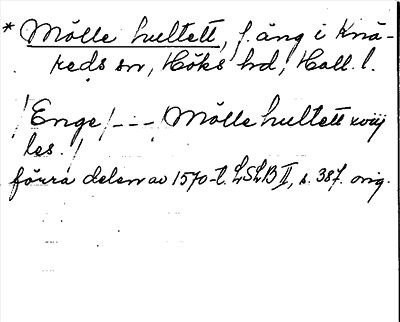 * Mölle hultett, f. äng i Knä-
reds sn, Höks hd, Hall. l.
/Enge/ --- /Mölle hultett xviij
les./
förra delen av 1570-t. LSLB II, s. 387. orig.